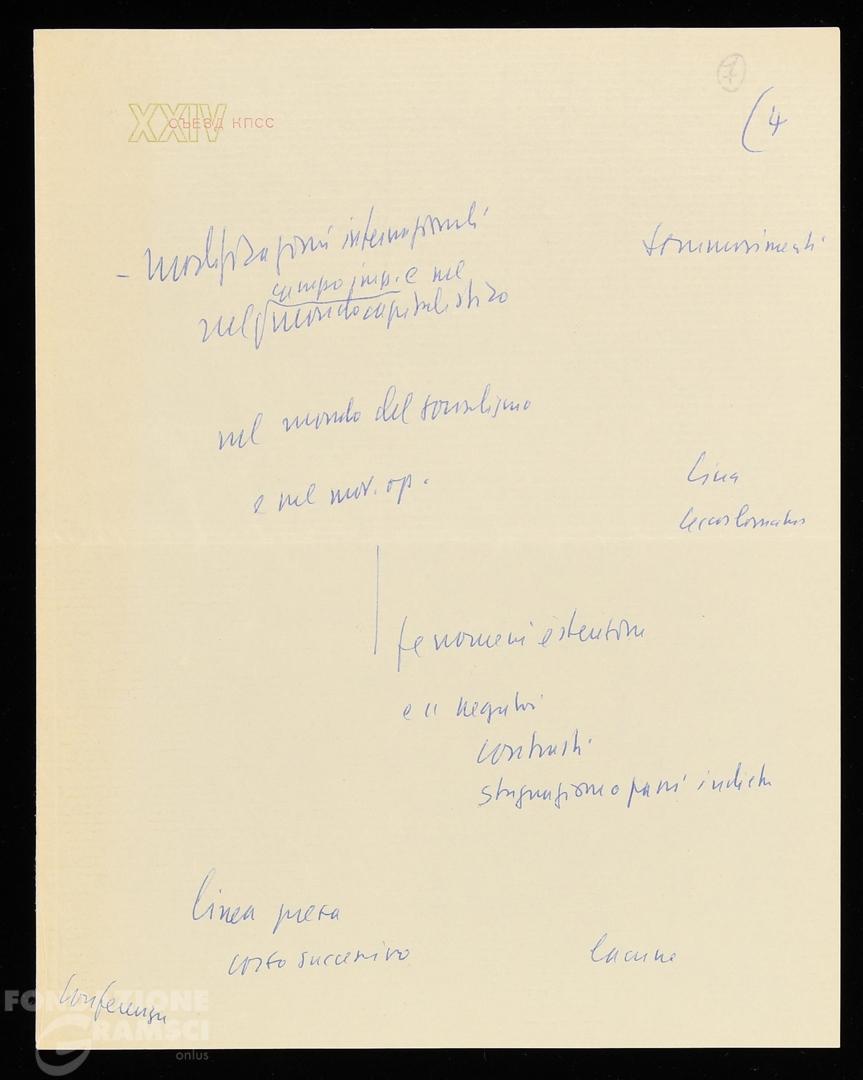 7
XXIV СЪЕЗД КПСС
(4
- Modificazioni internazionali
sommovimenti
campo imp. e nel
nel mondo capitalistico
nel mondo del socialismo
e nel mov. op.
Cina
Cecoslovacchia
fenomeni estensione
e " negativi
contrasti
stagnazione o passi indietro
linea presa
corso successivo
lacune
Conferenza
FONDAZIONE
GRAMSCI
onlus